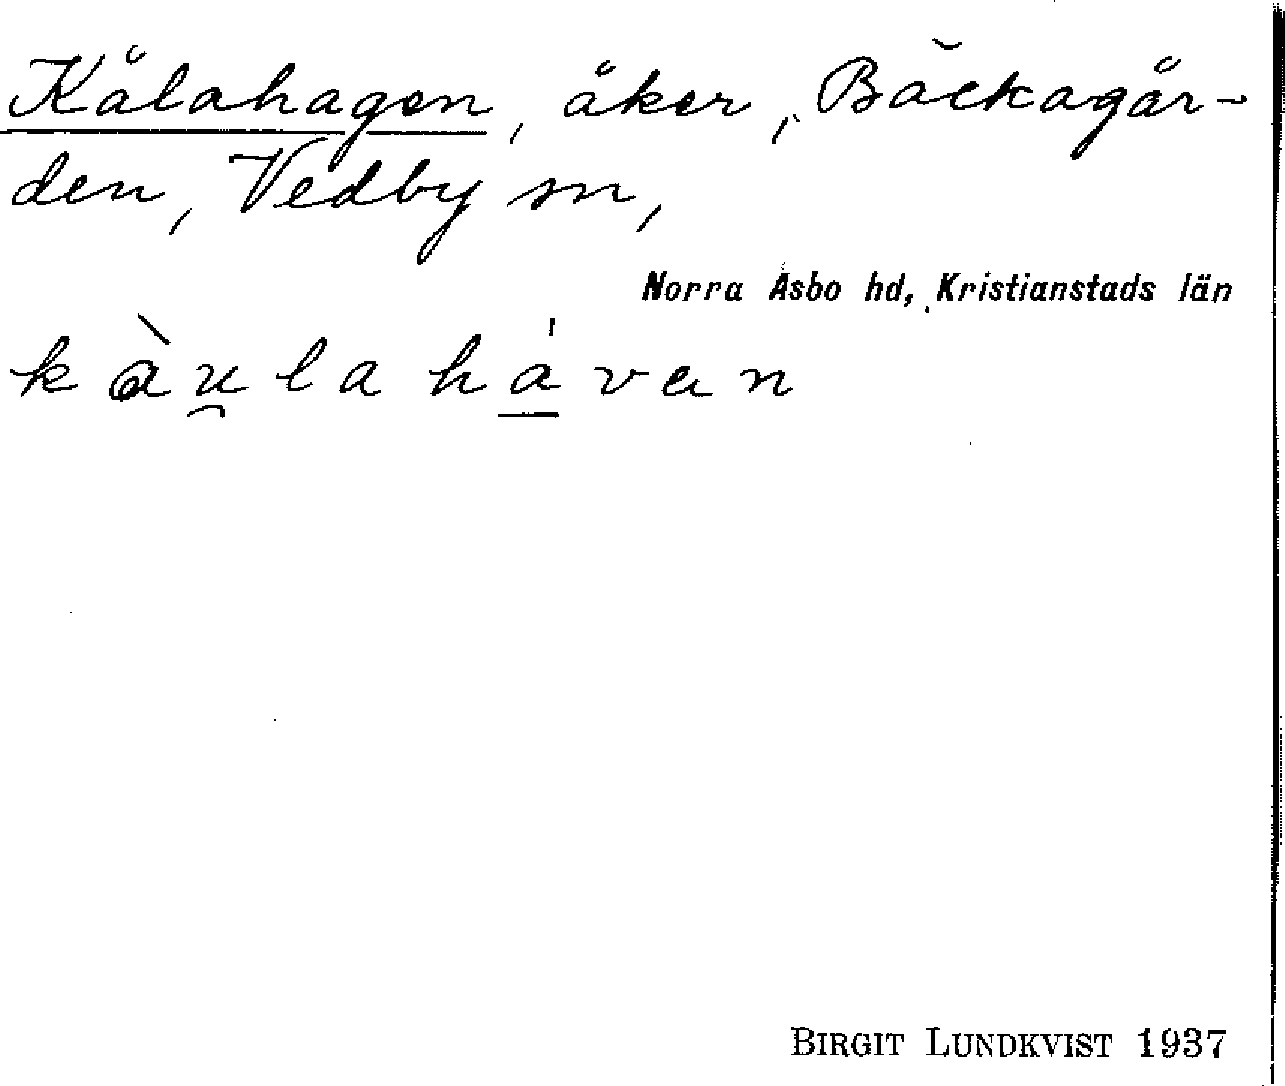 Kålahagen, åker, Bäckagår-
den, Vedby sn,
Norra Åsbo hd, Kristianstads län
kàu̯la há̱van
BIRGIT LUNDKVIST 1937